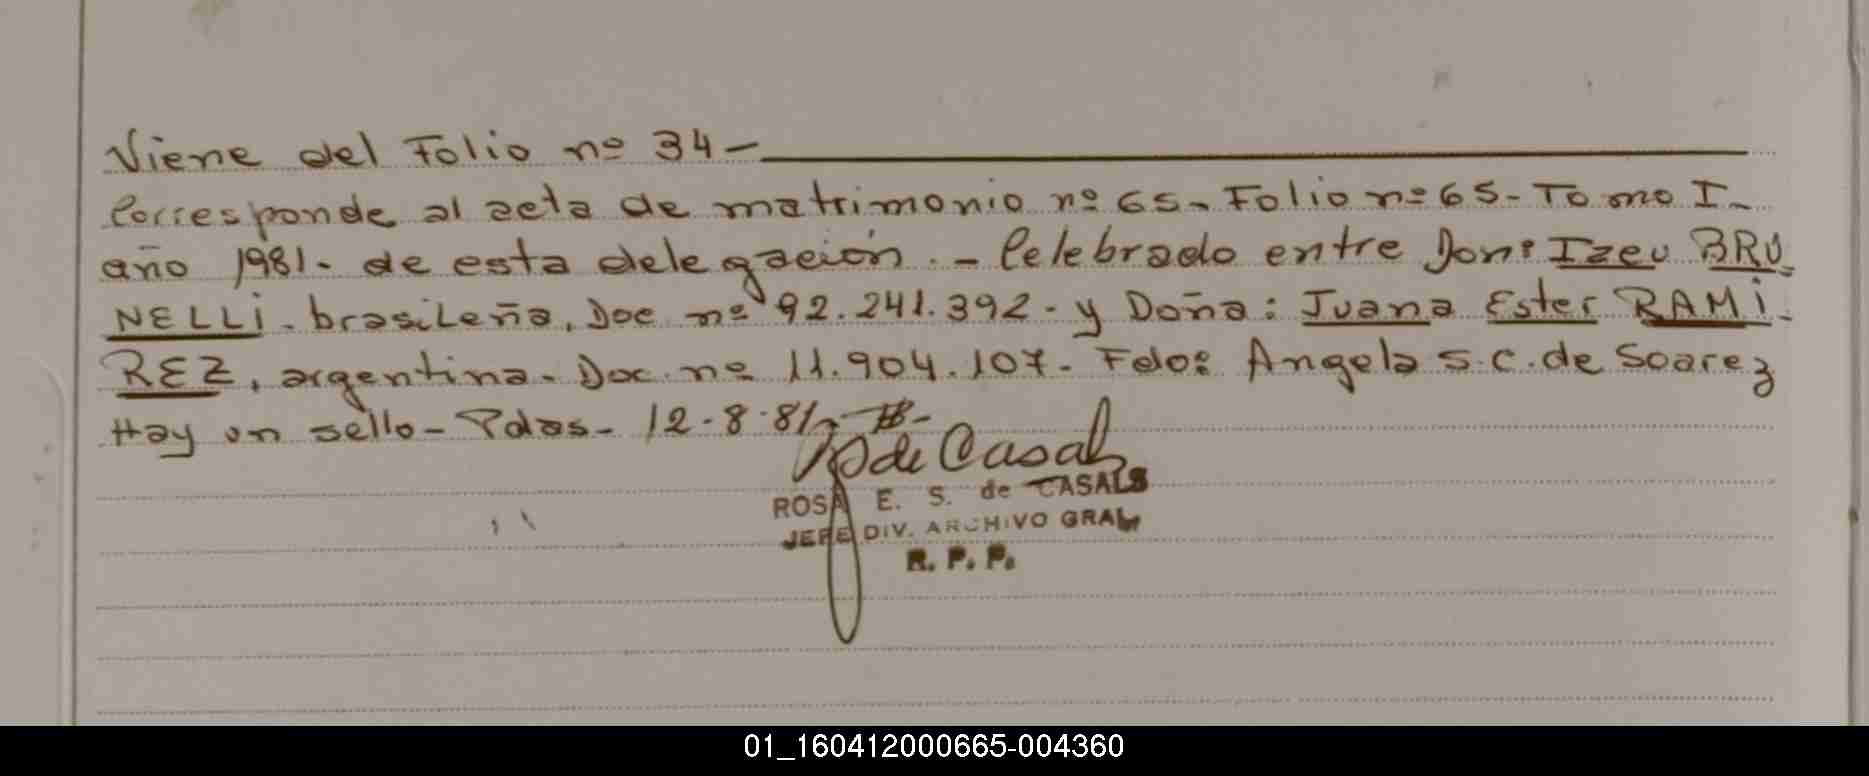 Viene del Folio nº 34 -
Corresponde al acta de matrimonio nº 65. Folio nº 65 - Tomo I -
año 1981. de esta delegación. - Celebrado entre Don: Izeu BRU
NELLI - brasileña, Doc nº 92.241.392 - y Doña: Juana Ester RAMI-
REZ, argentina. Doc. nº 11.904.107. Fdo: Angela S.C. de Soarez
Hay un sello - Pdas - 12-8-81
de Casals
ROSA E. S. de CASALS
JEFE DIV. ARCHIVO GRAL
R. P. P.
01_160412000665-004360